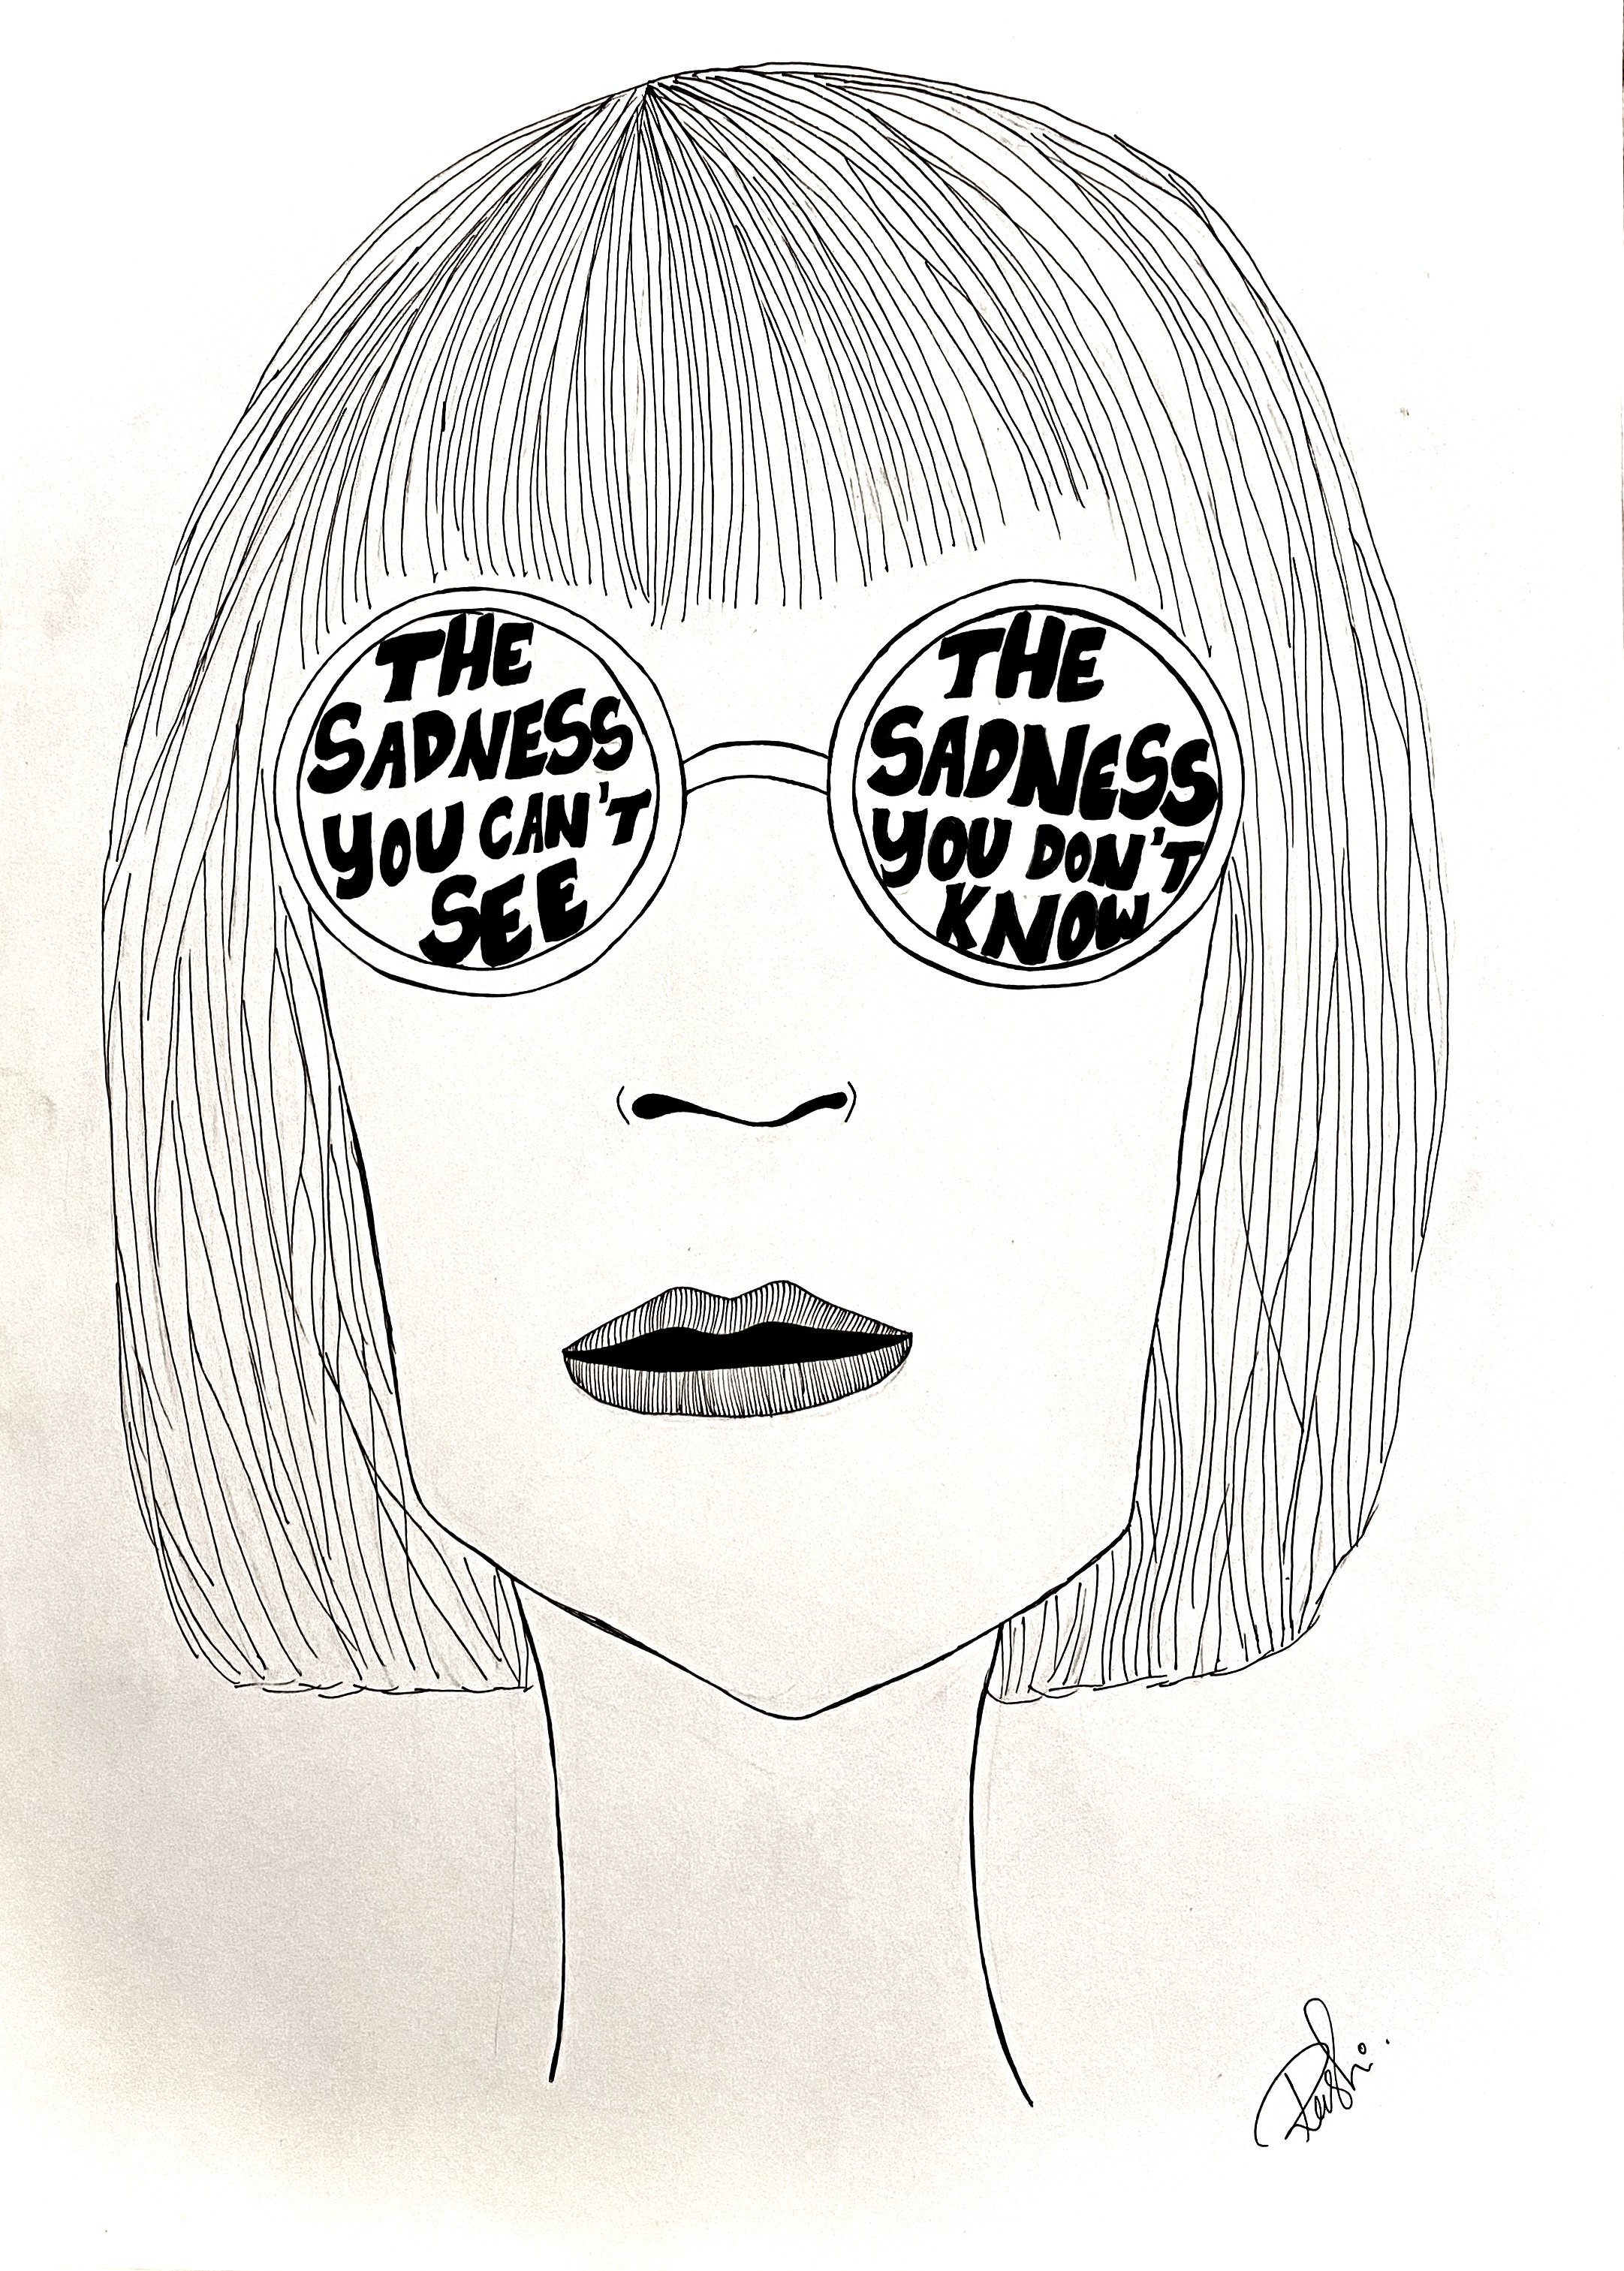 THE
SADNESS
YOU CAN'T
SEE
THE
SADNESS
YOU DON'T
KNOW